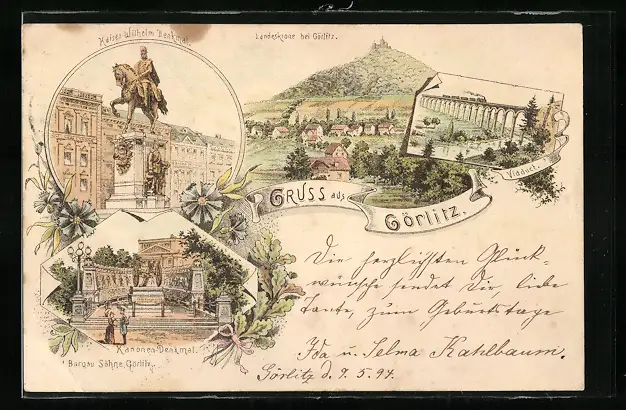 Kaiser Wilhelm Denkmal.
Landeskrone bei Görlitz.
Viaduct.
GRUSS aus
Görlitz.
Die herzlichsten Glück-
wünsche sendet Dir, liebe
Tante, zum Geburtstage
Ida u. Selma Kahlbaum.
Görlitz d. 9. 5. 94.
Kanonen-Denkmal.
Bargou Söhne, Görlitz.